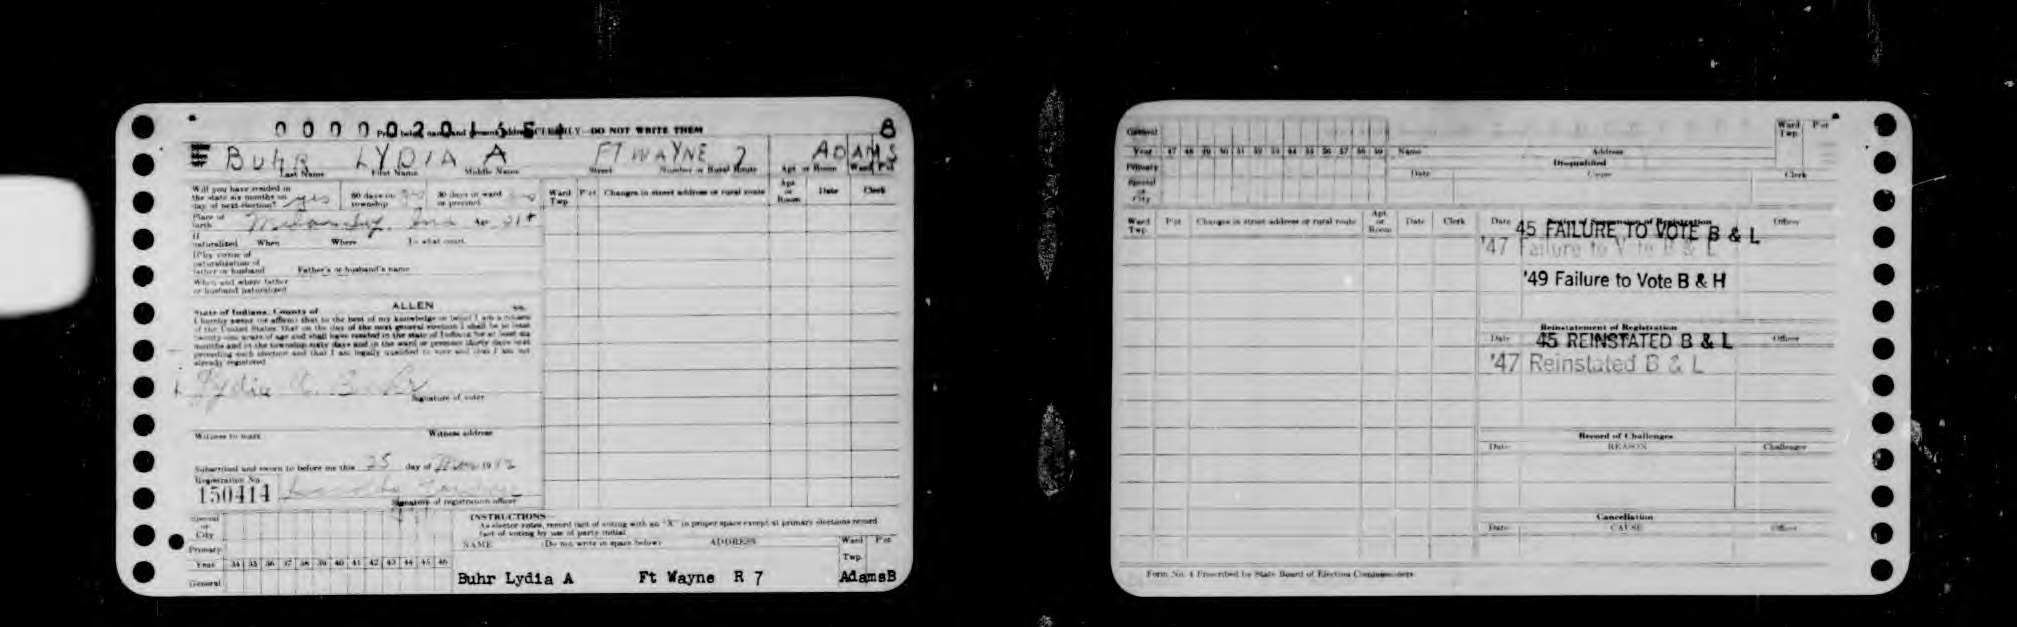 0 0 0 0 0 2 0
CLEARLY DO NOT WRITE THEM
8
BUHR LYDIA A FT WAYNE 7 ADAMS
Last Name First Name Middle Name Street Number or Rural Route Apt or Room Ward Pct
Will you have resided in
the state six months on
day of next election? yes 60 days in township 30 days in ward or precinct
Place of birth Ind 21+
If naturalized When Where To what court
If by virtue of
naturalization of
father or husband Father's or husband's name
When and where father
or husband naturalized
Ward Twp. Pct Changes in street address or rural route Apt or Room Date Clerk
State of Indiana, County of ALLEN ss.
I hereby swear (or affirm) that to the best of my knowledge or belief I am a citizen
of the United States, that on the day of the next general election I shall be at least
twenty-one years of age and shall have resided in the state of Indiana for at least six
months and in the township sixty days and in the ward or precinct thirty days next
preceding such election and that I am legally qualified to vote and that I am not
already registered
Lydia A. Buhr
Signature of voter
Witness to mark Witness address
Subscribed and sworn to before me this 25 day of 19
Registration No
150414
Signature of registration officer
Special or City
Primary
Year 34 35 36 37 38 39 40 41 42 43 44 45 46
General
INSTRUCTIONS
As elector votes, record fact of voting with an "X" in proper space except at primary elections record
fact of voting by use of party initial
NAME (Do not write in space below) ADDRESS Ward Pct
Twp.
Buhr Lydia A Ft Wayne R 7 AdamsB
General
Year 47 48 49 50 51 52 53 54 55 56 57 58 59
Primary
Special or City
Name Address Ward Twp. Pct
Disqualified
Date Cause Clerk
Ward Twp. Pct Changes in street address or rural route Apt or Room Date Clerk
Date Notice of Suspension of Registration Officer
45 FAILURE TO VOTE B & L
'47 Failure to Vote B & L
'49 Failure to Vote B & H
Reinstatement of Registration
Date Officer
45 REINSTATED B & L
'47 Reinstated B & L
Record of Challenges
Date REASON Challenger
Cancellation
Date CAUSE Officer
Form No. 4 Prescribed by State Board of Election Commissioners